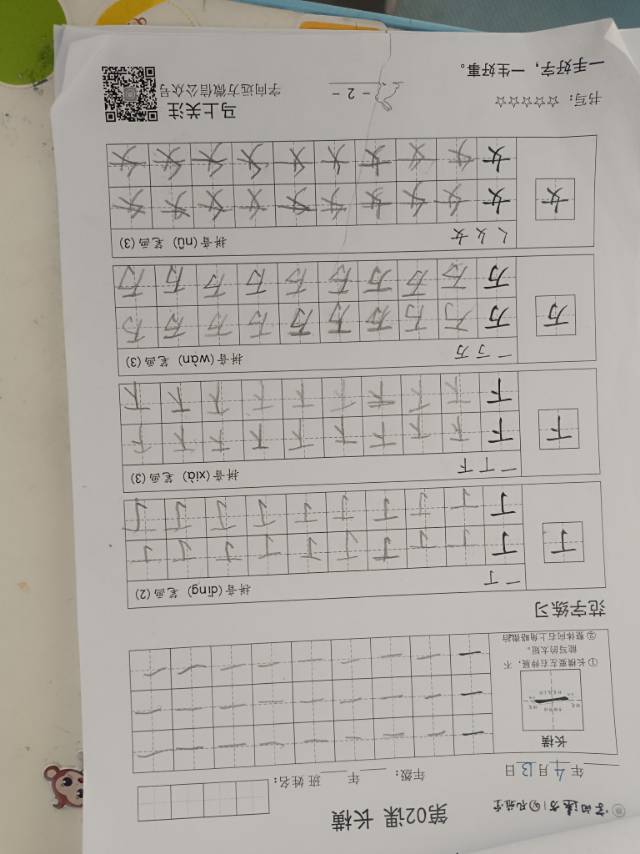 第02课 长横
年4月13日 年级：年 班 姓名：
长横
① 长横要左右伸展，不能写的太短。
② 整体向右上角略微抬
一 一 一 一 一 一 一 一 一
一 一 一 一 一 一 一 一 一
一 一 一 一 一 一 一 一 一
范字练习
一 丁 拼音(dīng) 笔画(2)
丁
丁 丁 丁 丁 丁 丁 丁 丁 丁 丁
丁 丁 丁 丁 丁 丁 丁 丁 丁 丁
一 丅 下 拼音(xià) 笔画(3)
下
下 下 下 下 下 下 下 下 下 下
下 下 下 下 下 下 下 下 下 下
一 丂 万 拼音(wàn) 笔画(3)
万
万 万 万 万 万 万 万 万 万 万
万 万 万 万 万 万 万 万 万 万
く 女 女 拼音(nǚ) 笔画(3)
女
女 女 女 女 女 女 女 女 女 女
女 女 女 女 女 女 女 女 女 女
书写：☆☆☆☆☆
一手好字，一生好事。
- 2 -
马上关注
字向远方微信公众号